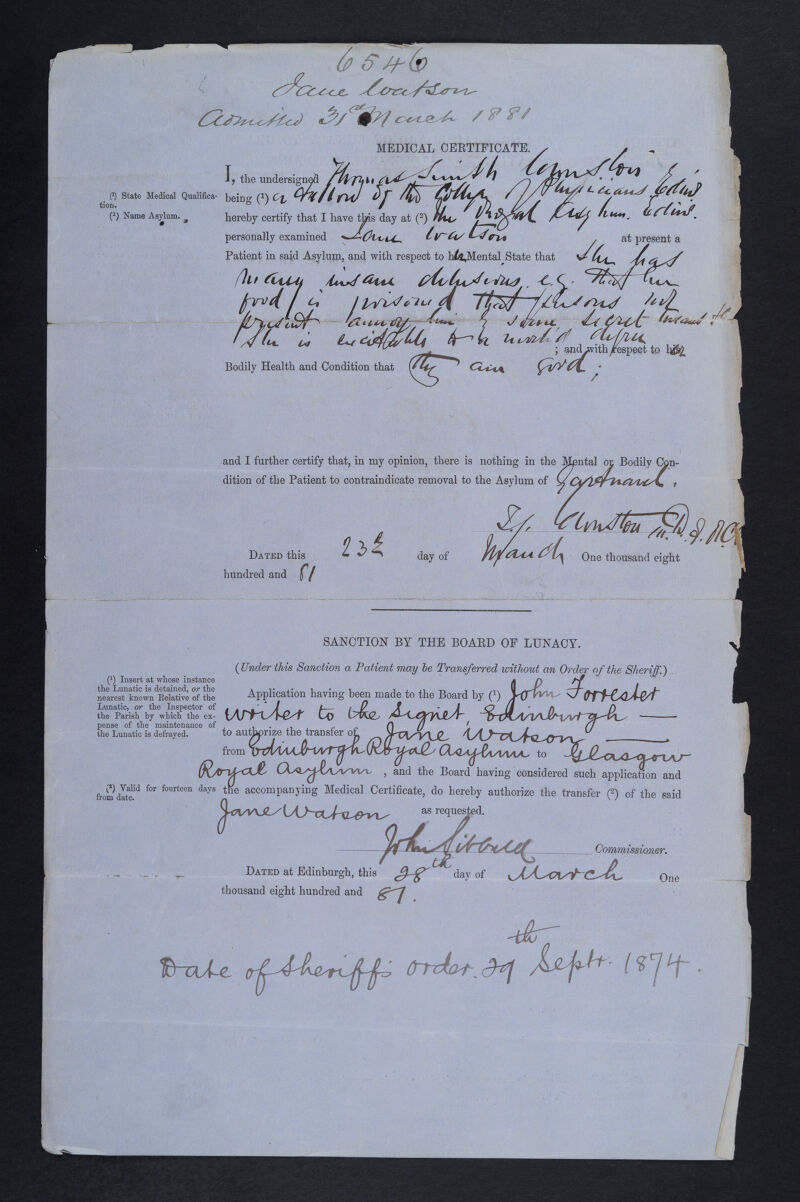 6546
Jane Watson
Admitted 31st March 1881
MEDICAL CERTIFICATE.
I, the undersigned Thomas Smith Clouston
(¹) State Medical Qualifica-
tion.
(²) Name Asylum.
being (¹) a Fellow of the College of Physicians Edinr
hereby certify that I have this day at (²) the Royal Asylum. Edinr.
personally examined Jane Watson at present a
Patient in said Asylum, and with respect to her Mental State that she has
many insane delusions e.g. that her
food is poisoned that persons not
present annoy her by some secret means &c
She is excitable to a morbid degree
; and with respect to her
Bodily Health and Condition that they are good;
and I further certify that, in my opinion, there is nothing in the Mental or Bodily Con-
dition of the Patient to contraindicate removal to the Asylum of Gartnavel.
T.S. Clouston M.D. F.R.C.
DATED this 23d day of March One thousand eight
hundred and 81
SANCTION BY THE BOARD OF LUNACY.
(Under this Sanction a Patient may be Transferred without an Order of the Sheriff.)
(¹) Insert at whose instance
the Lunatic is detained, or the
nearest known Relative of the
Lunatic, or the Inspector of
the Parish by which the ex-
pense of the maintenance of
the Lunatic is defrayed.
Application having been made to the Board by (¹) John Forrester
writer to the Signet, Edinburgh —
to authorize the transfer of Jane Watson —
from Edinburgh Royal Asylum to Glasgow
Royal Asylum , and the Board having considered such application and
(²) Valid for fourteen days
from date.
the accompanying Medical Certificate, do hereby authorize the transfer (²) of the said
Jane Watson as requested.
John Sibbald Commissioner.
DATED at Edinburgh, this 28th day of March One
thousand eight hundred and 81.
Date of Sheriff's order. 29th Septr. 1874.